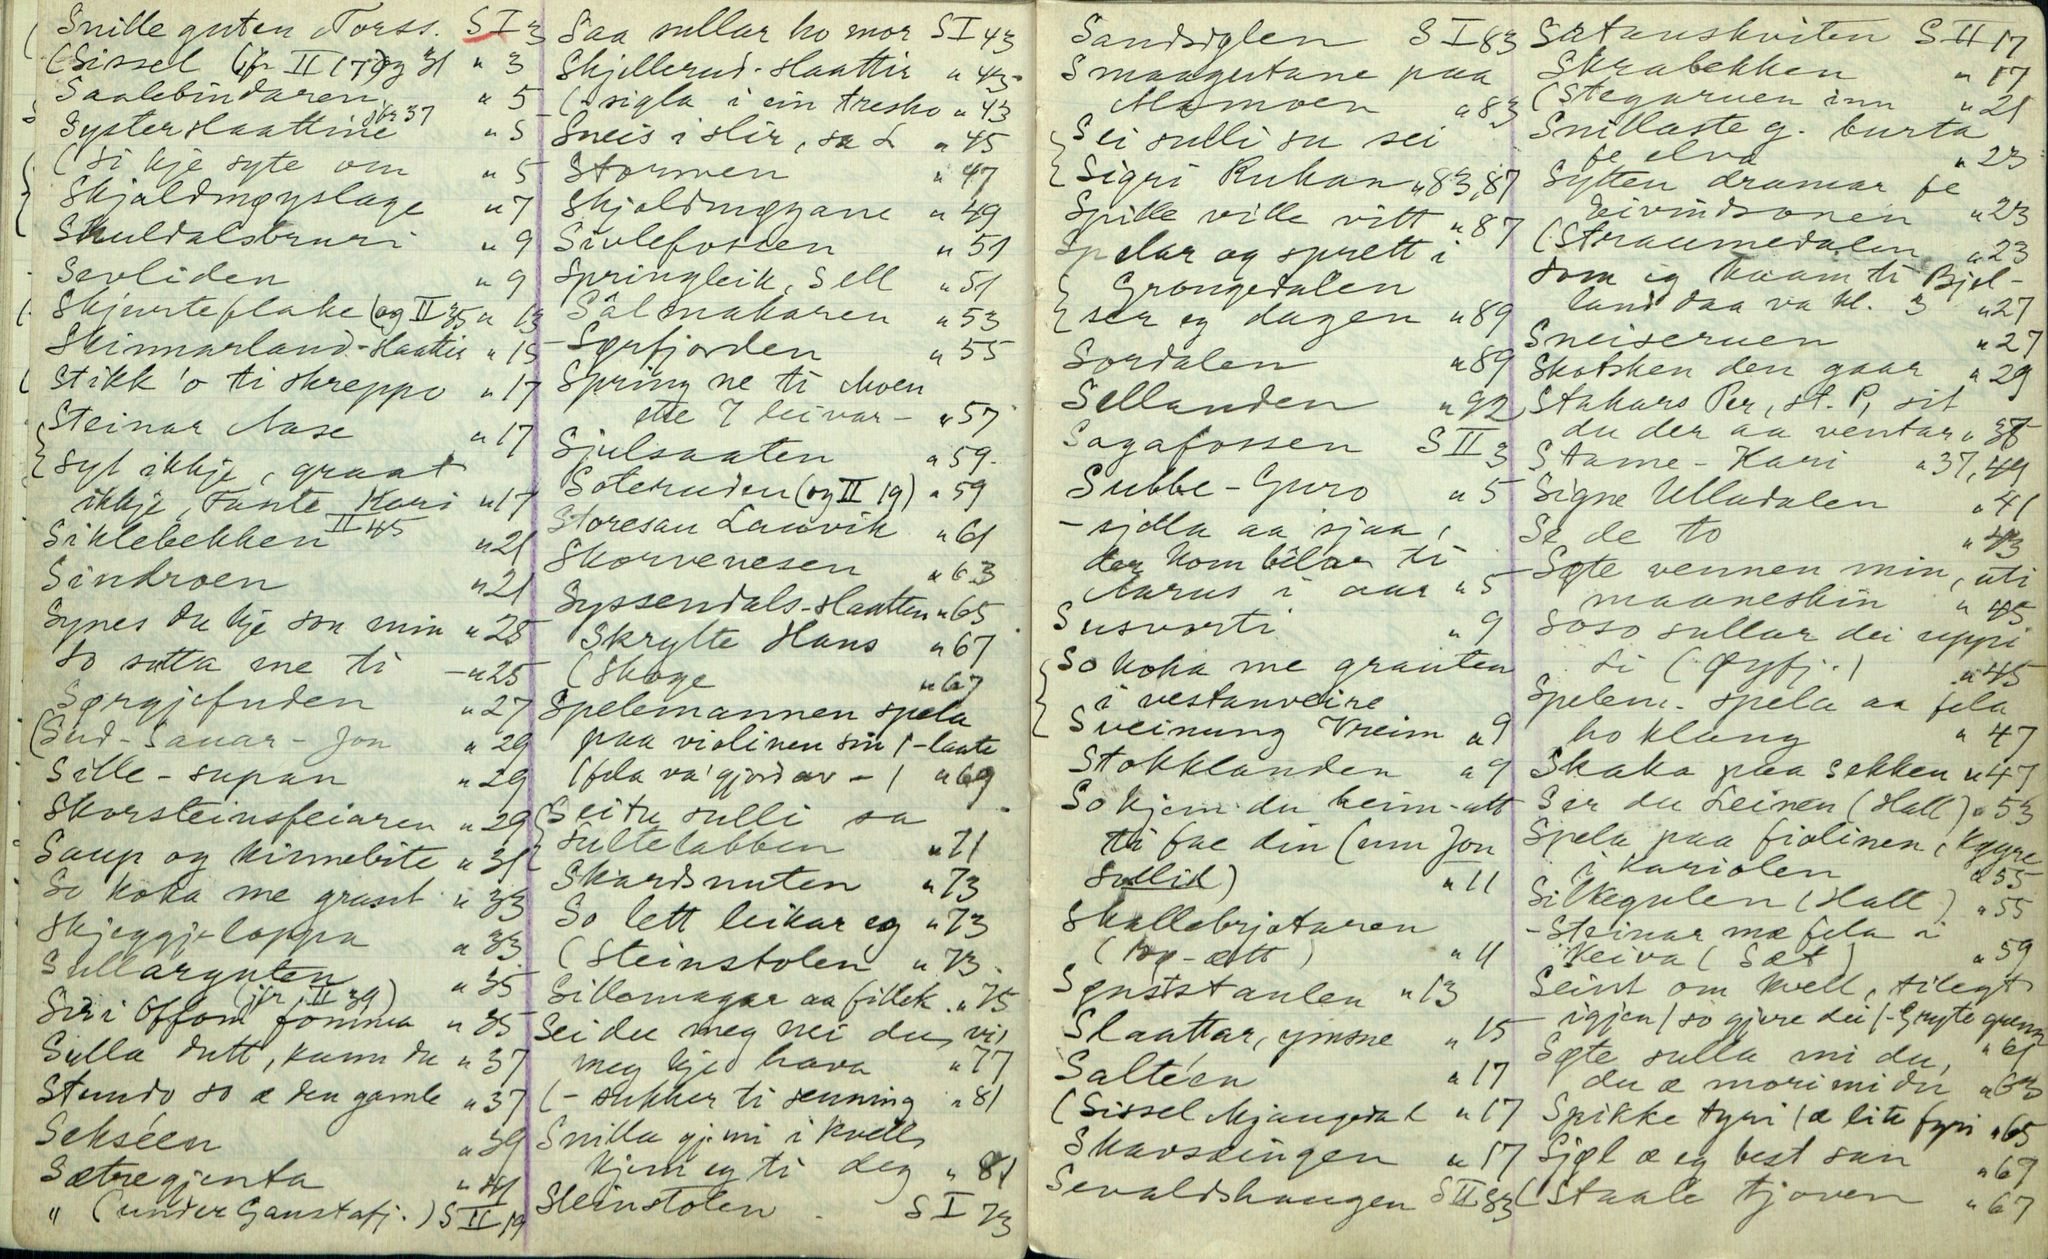 Snille guten Torss. S I 3
(Sissel (jfr II 17 og 31 " 3
Saalebindaren " 5
Systerslaattine " 5
(Si kje syte om " 5
Skjoldmøyslage " 7
Skuldalsbruri " 9
Sevliden " 9
Skjurteflake (og II 35 " 13
Skinnarland-slaattir " 15
Stikk 'o ti skreppo " 17
Steinar Aase " 17
Syt ikkje, graat
ikkje, Tante Kari " 17
Siklebekken II 45 " 21
Sindroen " 21
Synes du kje son min " 25
So sutta me ti - " 25
Sørgjefuden " 27
(Sud-Sauar-Jon " 29
Sille-supan " 29
Skorsteinsfeiaren " 29
Saup og kinnebite " 31
So koka me graut " 33
Skjeggje-loppa " 33
Sullarguten " 35
(jfr. II 39)
Siri Offom fomma " 35
Sulla dutt, kann du " 37
Stundo so æ den gamle " 37
Sekséen " 39
Sætregjenta " 41
" (under Gaustafj.) S II 19
Saa sullar ho mor S I 43
Skjellerud-slaattir " 43
(- sigla i ein tresko " 43
Sneis i Hir, sa L " 45
Stormen " 47
Skjoldmøyane " 49
Sivlefossen " 51
Springleik, Sell " 51
Sålmakaren " 53
Sørfjorden " 55
Spring ne ti Moen
ette 7 leivar - " 57
Sjulsaaten " 59
Soteruden (og II 19) " 59
Storesau Lauvik " 61
Skorvenesen " 63
Syssendals-slaatten " 65
Skrylte Hans " 67
(Skoge " 67
Spelemannen spela
paa violinen sin /-laate
(fela va' gjord av - / " 69
Sei tu sulli sa
Sultelabben " 71
Skardsnuten " 73
So lett leikar eg " 73
(Steinstolen " 73
Sillomagar aa fillek. " 75
Sei du meg nei du, vi,
meg kje hava " 77
(- sukker ti senning " 81
Snilla gjemi i kveld
kjem eg ti deg " 81
Steinstolen S I 73
Sandsiglen S I 83
Smaagutane paa
Momoen " 83
Sei sulli su sei
Sigri Rukan " 83, 87
Spille ville vitt " 87
Spelar og sprett i
Grongedalen
ser eg dagen " 89
Sordalen " 89
Sellanden " 92
Sagafossen S II 3
Subbe-Guro " 5
- sjølla aa sjaa,
der kom bilar ti
Aarus i aar " 5
Susvorti " 9
So koka me grauten
i vestanveire
Sveinung Vreim " 9
Stokklanden " 9
So kjem du heim-att
ti fae din (um Jon
Sollid) " 11
Skallebrjotaren
Sønststaulen " 13
Slaattar, ymsne " 15
Saltéen " 17
(Sissel Mjaugedal " 17
Skavsdingen " 17
Sevaldshaugen S II 83
Satanskviten S II 17
Skrabekken " 17
(Stegaruen inn " 21
Snillaste g. burta
fe elva " 23
Sytten dramar fe
Eivindsonen " 23
(Straumedalen " 23
Som eg kaam ti Bjel-
land daa va kl. 3 " 27
Sneiseruen " 27
Skotsken den gaar " 29
Stakars Per, st. P, sit
du der aa ventar " 35
Stame-Kari " 37, 49
Signe Ulladalen " 41
Se de to " 43
Søte vennen min, uti
maaneskin " 45
Soso sullar dei uppi
Li (Øyfj.) " 45
Spelem. spela aa fela
ho klang " 47
Skaka paa sekken " 47
Ser du Leinen (Hall) " 53
Spela paa fiolinen, køyre
i kariolen " 55
Silkegulen (Hall) " 55
- Steinar mæ fela i
Keiva (Sæt) " 59
Seint om kvell, tilegt
igjen / so gjere dei /-Gryte
" 61
Søte sulla mi du,
du æ mori mi du " 63
Spikke tyri (æ lite fyri " 65
Sjøl æ eg best san " 67
(Staale Tjoven " 67